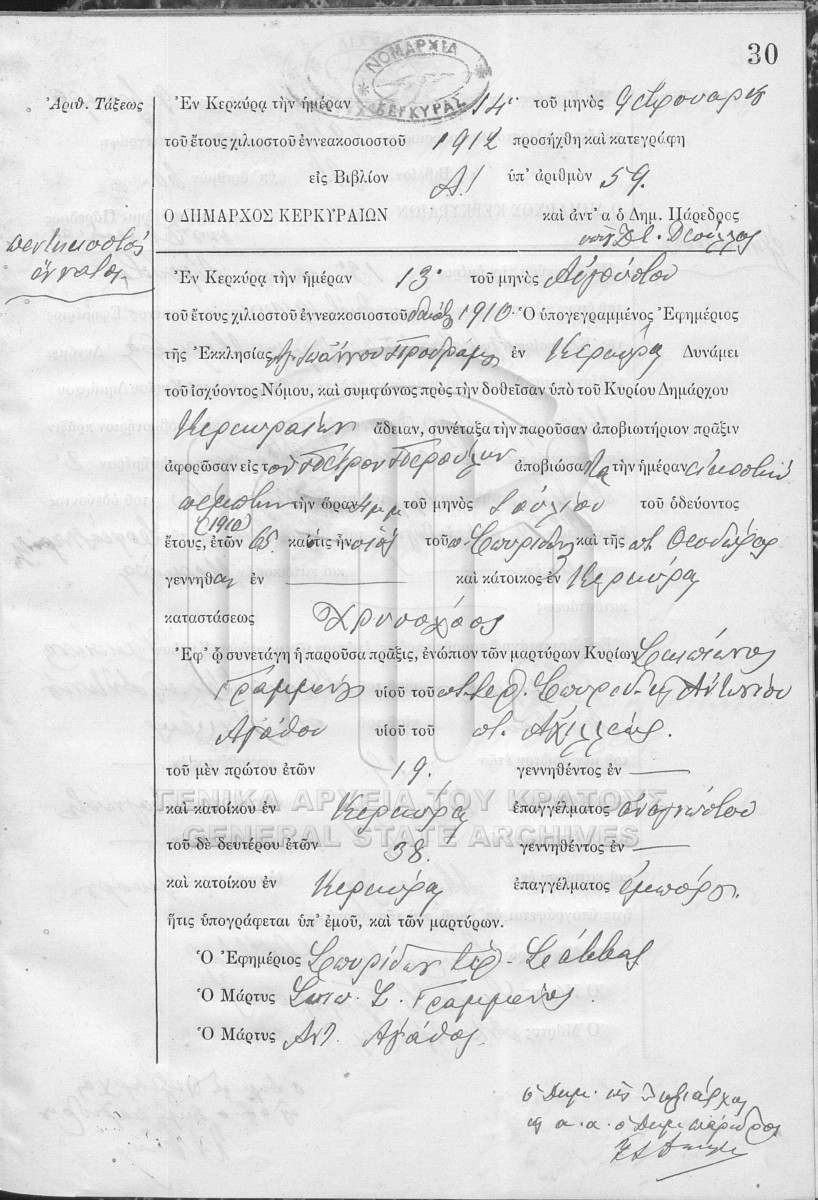 30
ΝΟΜΑΡΧΙΑ
ΚΕΡΚΥΡΑΣ
Ἀριθ. Τάξεως
Ἐν Κερκύρᾳ τὴν ἡμέραν 14 τοῦ μηνὸς
τοῦ ἔτους χιλιοστοῦ ἐννεακοσιοστοῦ 1912 προσήχθη καὶ κατεγράφη
εἰς Βιβλίον Α! ὑπ' ἀριθμὸν 59.
Ο ΔΗΜΑΡΧΟΣ ΚΕΡΚΥΡΑΙΩΝ καὶ ἀντ' α ὁ Δημ. Πάρεδρος
πεντηκοστὸς
ἔννατος
Ἐν Κερκύρᾳ τὴν ἡμέραν 13 τοῦ μηνὸς Αὐγούστου
τοῦ ἔτους χιλιοστοῦ ἐννεακοσιοστοῦ δεκάτου 1910. Ὁ ὑπογεγραμμένος Ἐφημέριος
τῆς Ἐκκλησίας Ἁγ. Ἰωάννου Προδρόμου ἐν Κερκύρᾳ Δυνάμει
τοῦ ἰσχύοντος Νόμου, καὶ συμφώνως πρὸς τὴν δοθεῖσαν ὑπὸ τοῦ Κυρίου Δημάρχου
Κερκυραίων ἄδειαν, συνέταξα τὴν παροῦσαν ἀποβιωτήριον πρᾶξιν
ἀφορῶσαν εἰς τὸν Πέτρον Περούλην ἀποβιώσαντα τὴν ἡμέραν εἰκοστὴν
πέμπτην τὴν ὥραν 4 μ.μ τοῦ μηνὸς Ἰουλίου τοῦ ὁδεύοντος
(1910)
ἔτους, ἐτῶν 65 καὶ ὅτις ἦν υἱὸς τοῦ π. Σπυρίδωνος καὶ τῆς ποτ. Θεοδώρας
γεννηθεὶς ἐν — καὶ κάτοικος ἐν Κερκύρᾳ
καταστάσεως Χρυσοχόος
Ἐφ' ᾧ συνετάγη ἡ παροῦσα πρᾶξις, ἐνώπιον τῶν μαρτύρων Κυρίων
Γραμμένου υἱοῦ τοῦ Σπυρίδωνος καὶ Ἀντωνίου
Ἀγάθου υἱοῦ τοῦ ποτ. Ἀχιλλέως.
τοῦ μὲν πρώτου ἐτῶν 19. γεννηθέντος ἐν —
καὶ κατοίκου ἐν Κερκύρᾳ ἐπαγγέλματος ἀναγνώστου
τοῦ δὲ δευτέρου ἐτῶν 38. γεννηθέντος ἐν —
καὶ κατοίκου ἐν Κερκύρᾳ ἐπαγγέλματος ἐμπόρου.
ἥτις ὑπογράφεται ὑπ' ἐμοῦ, καὶ τῶν μαρτύρων.
Ὁ Ἐφημέριος Σπυρίδων Ἱερ. Σάββας
Ὁ Μάρτυς Σ. Γραμμένος.
Ὁ Μάρτυς Ἀντ. Ἀγάθος.
ὁ Δημ. ὡς Ληξίαρχος
ὡς α. α. ὁ Δημ πάρεδρος
ΓΕΝΙΚΑ ΑΡΧΕΙΑ ΤΟΥ ΚΡΑΤΟΥΣ
GENERAL STATE ARCHIVES